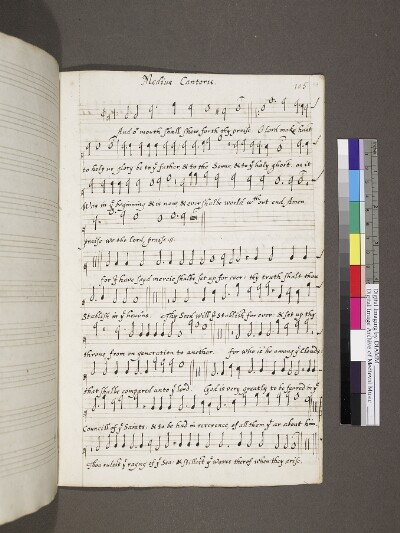 Medius Cantoris.
106
And oʳ mouth shall shew forth thy praise. O lord make hast
to help us glory be to yᵉ father & to the Sonne & to yᵉ holy ghost. as it
Was in yᵉ beginning & is now & ever shalbe world wᵗʰout end Amen
praise we the lord, praise :||:
For yᵉ have sayd mercie shalbe set up for ever: thy truth shalt thou
Stablish in yᵉ heavens. Thy Seed will yᵉ Stablish for ever: & set up thy
throne from on generation to another. For who is he among yᵉ Clouds
that shalbe compared unto yᵉ lord. God is very greatly to be feared in yᵉ
Councill of yᵉ Saints: & to be had in reverence of all them yᵗ ar about him.
Thou rulest yᵉ raging of yᵉ Sea: & stillest yᵉ waves therof when they arise.
Digital Imaging by DIAMM
Digital Image Archive of Medieval Music